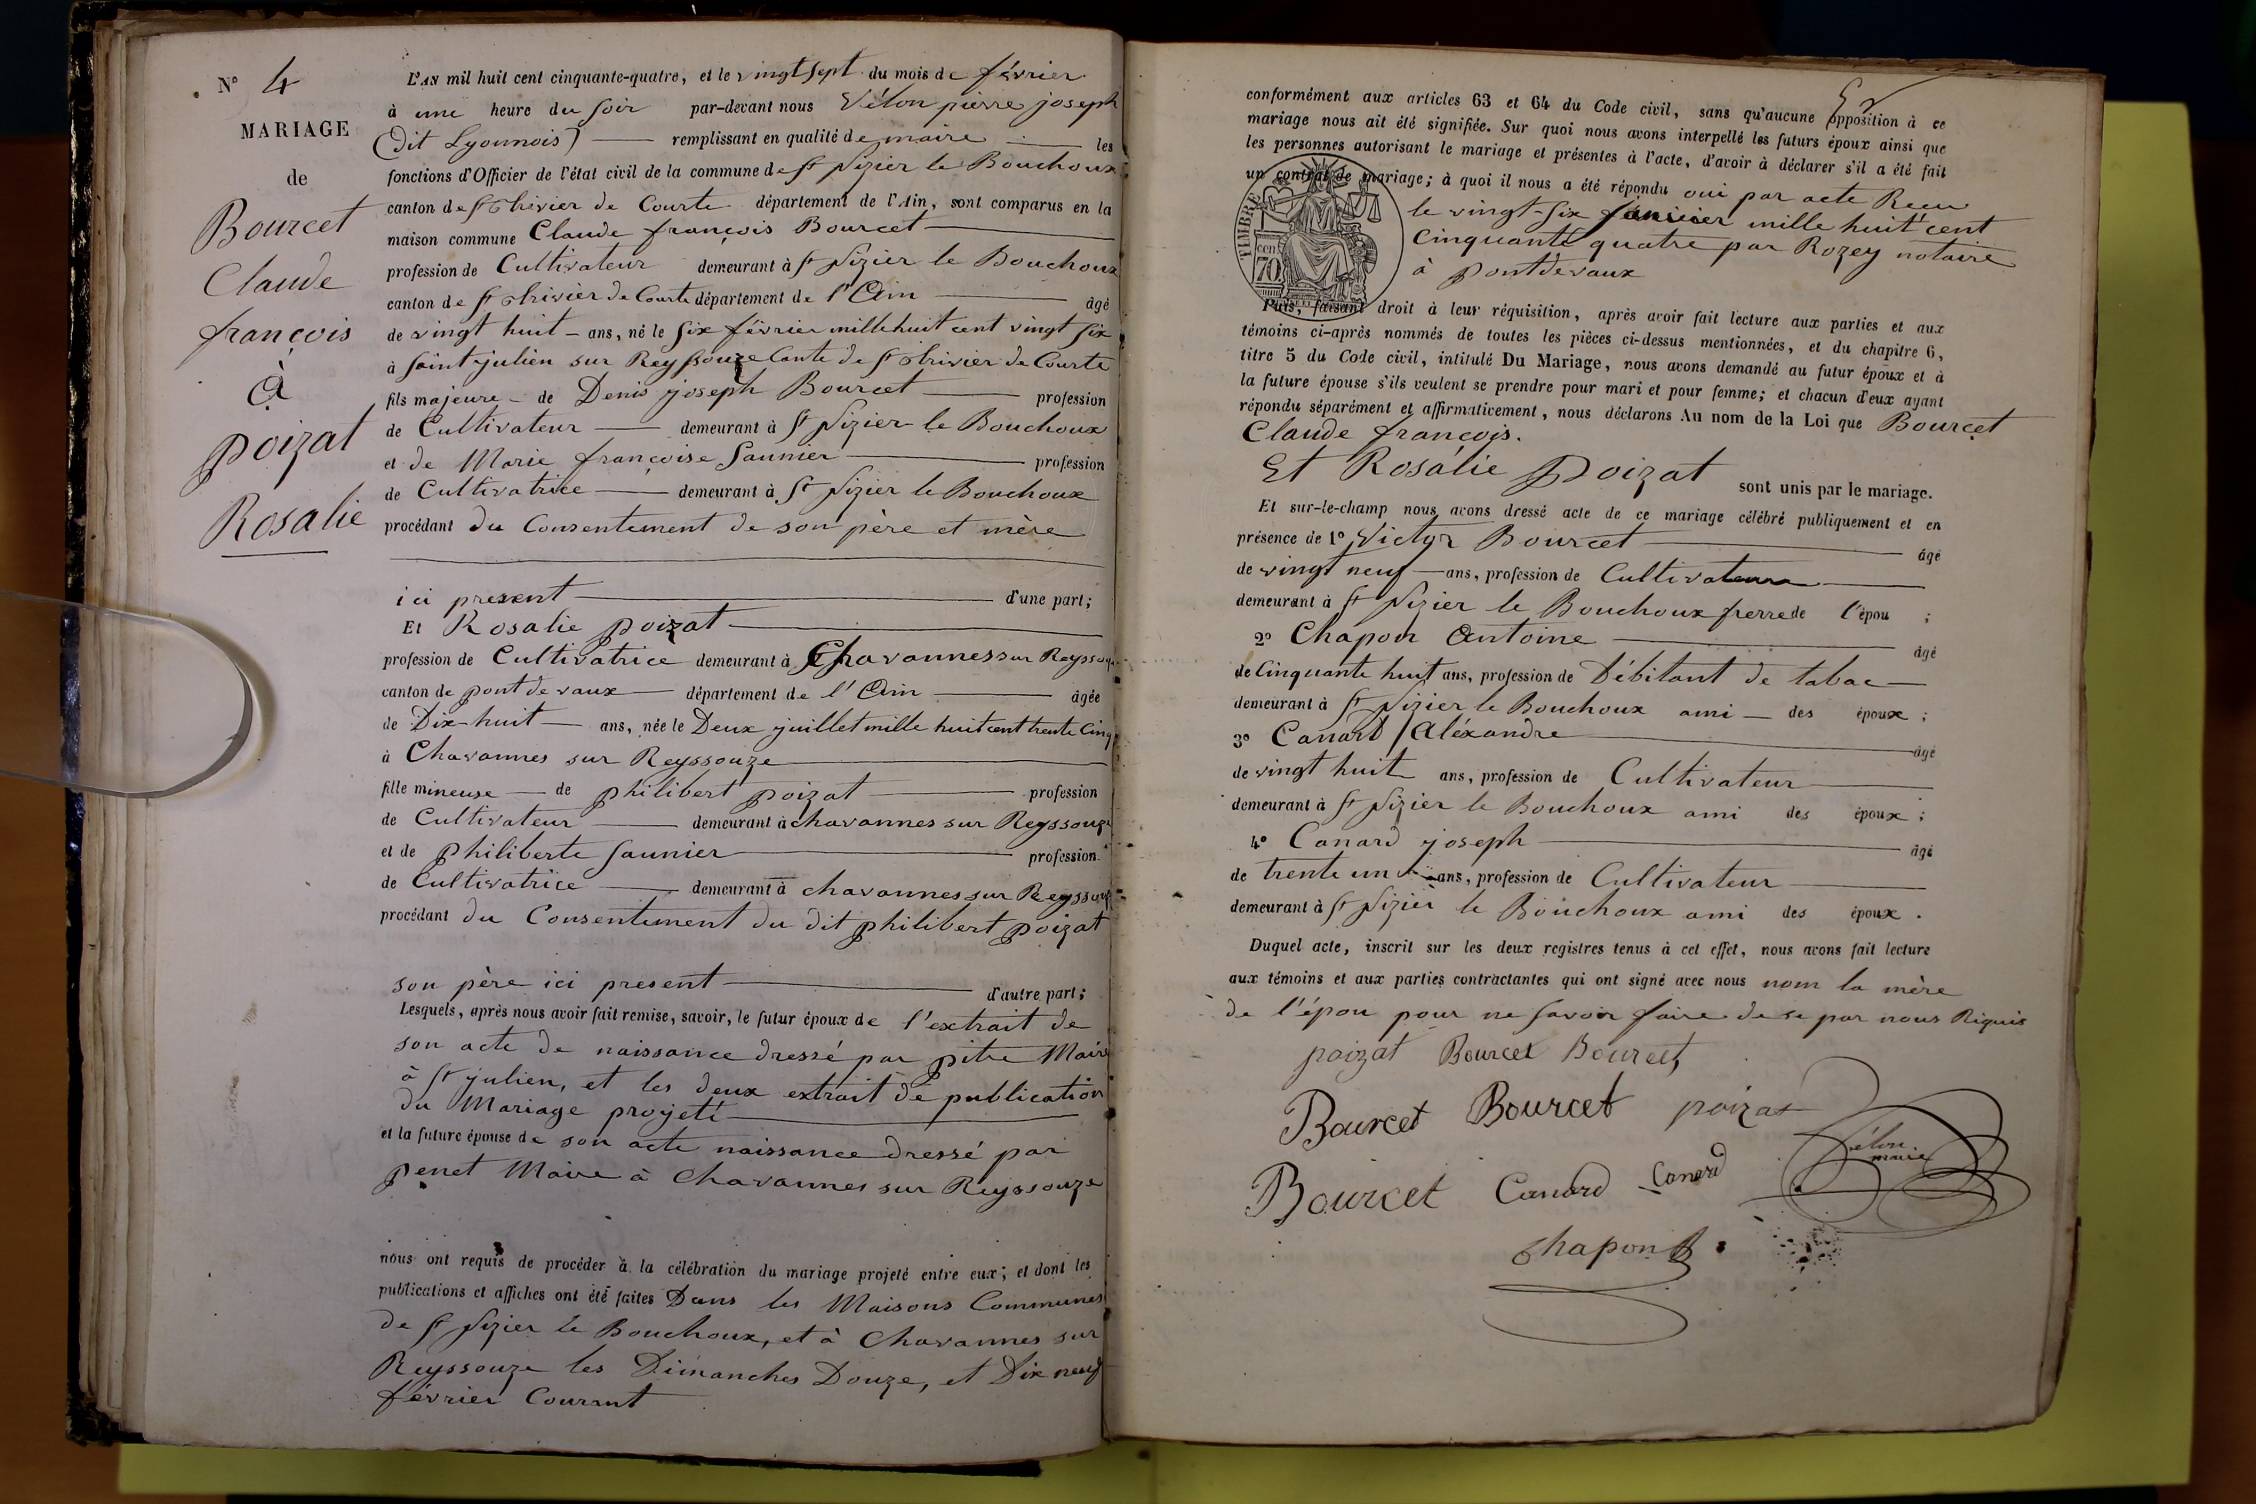 N° 4
MARIAGE
de
Bourcet
Claude
françois
à
poizat
Rosalie
L'AN mil huit cent cinquante-quatre, et le vingt sept du mois de février
à une heure du soir par-devant nous Vélon pierre joseph
(dit Lyonnois) remplissant en qualité de maire les
fonctions d'Officier de l'état civil de la commune de St Nizier le Bouchoux
canton de St Trivier de Courte département de l'Ain, sont comparus en la
maison commune Claude françois Bourcet
profession de Cultivateur demeurant à St Nizier le Bouchoux
canton de St Trivier de Courte département de l'Ain âgé
de vingt huit ans, né le Six février mille huit cent vingt Six
à Saint julien sur Reyssouze Cantn de St Trivier de Courte
fils majeure de Denis joseph Bourcet profession
de Cultivateur demeurant à St Nizier le Bouchoux
et de Marie françoise Saunier profession
de Cultivatrice demeurant à St Nizier le Bouchoux
procédant du Consentement de son père et mère
ici present d'une part;
Et Rosalie poizat
profession de Cultivatrice demeurant à Chavannes sur Reyssouze
canton de pont de vaux département de l'Ain âgée
de Dix-huit ans, née le Deux juillet mille huit cent trente Cinq
à Chavannes sur Reyssouze
fille mineuse de philibert poizat profession
de Cultivateur demeurant à chavannes sur Reyssouze
et de philiberte Saunier profession
de Cultivatrice demeurant à chavannes sur Reyssouze
procédant du Consentement du dit philibert poizat
son père ici present d'autre part;
Lesquels, après nous avoir fait remise, savoir, le futur époux de l'extrait de
son acte de naissance dressé par pitre Maire
à St julien, et les deux extrait de publication
du Mariage projeté
et la future épouse de son acte naissance dressé par
penet Maire à Chavannes sur Reyssouze
nous ont requis de procéder à la célébration du mariage projeté entre eux; et dont les
publications et affiches ont été faites Dans les Maisons Communes
de St Nizier le Bouchoux, et à Chavannes sur
Reyssouze les Dimanches Douze, et Dix neuf
février Courant
conformément aux articles 63 et 64 du Code civil, sans qu'aucune opposition à ce
mariage nous ait été signifiée. Sur quoi nous avons interpellé les futurs époux ainsi que
les personnes autorisant le mariage et présentes à l'acte, d'avoir à déclarer s'il a été fait
un contrat de mariage; à quoi il nous a été répondu oui par acte Recu
le vingt-Six janvier mille huit cent
Cinquante quatre par Rozey notaire
à pontdevaux
TIMBRE
cen
70
Puis, faisant droit à leur réquisition, après avoir fait lecture aux parties et aux
témoins ci-après nommés de toutes les pièces ci-dessus mentionnées, et du chapitre 6,
titre 5 du Code civil, intitulé Du Mariage, nous avons demandé au futur époux et à
la future épouse s'ils veulent se prendre pour mari et pour femme; et chacun d'eux ayant
répondu séparément et affirmativement, nous déclarons Au nom de la Loi que Bourcet
Claude françois.
Et Rosalie Poizat sont unis par le mariage.
Et sur-le-champ nous avons dressé acte de ce mariage célébré publiquement et en
présence de 1° Victor Bourcet âgé
de vingt neuf ans, profession de Cultivateur
demeurant à St Nizier le Bouchoux frerre de l'épou ;
2° Chapon Antoine âgé
de Cinquante huit ans, profession de Débitant de tabac
demeurant à St Nizier le Bouchoux ami des époux ;
3° Canard Aléxandre âgé
de vingt huit ans, profession de Cultivateur
demeurant à St Nizier le Bouchoux ami des époux ;
4° Canard joseph âgé
de trente un ans, profession de Cultivateur
demeurant à St Nizier le Bouchoux ami des époux .
Duquel acte, inscrit sur les deux registres tenus à cet effet, nous avons fait lecture
aux témoins et aux parties contractantes qui ont signé avec nous nom la mère
de l'épou pour ne savoir faire de ce par nous Riquis
poizat Bourcet Bourcet
Bourcet Bourcet poizat
Vélon
maire
Bourcet Canard Canard
Chapon